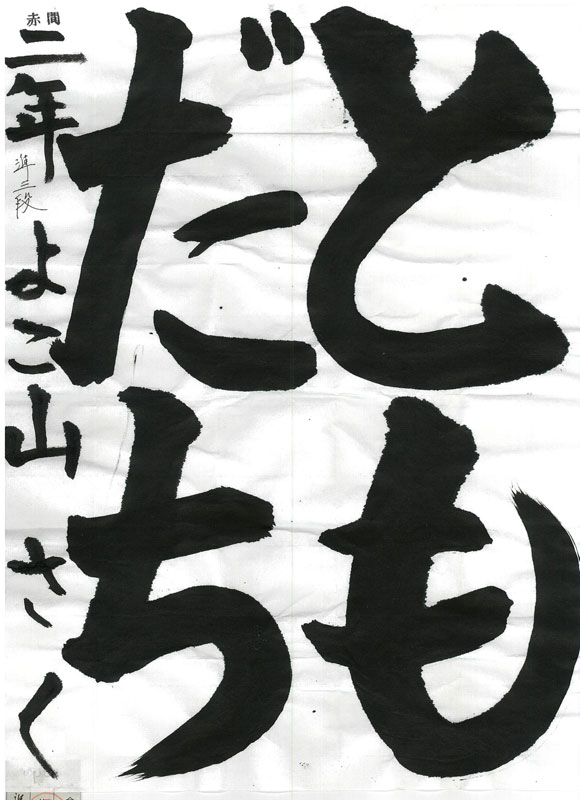 とも
だち
赤間
二年 準三段 よこ山さく